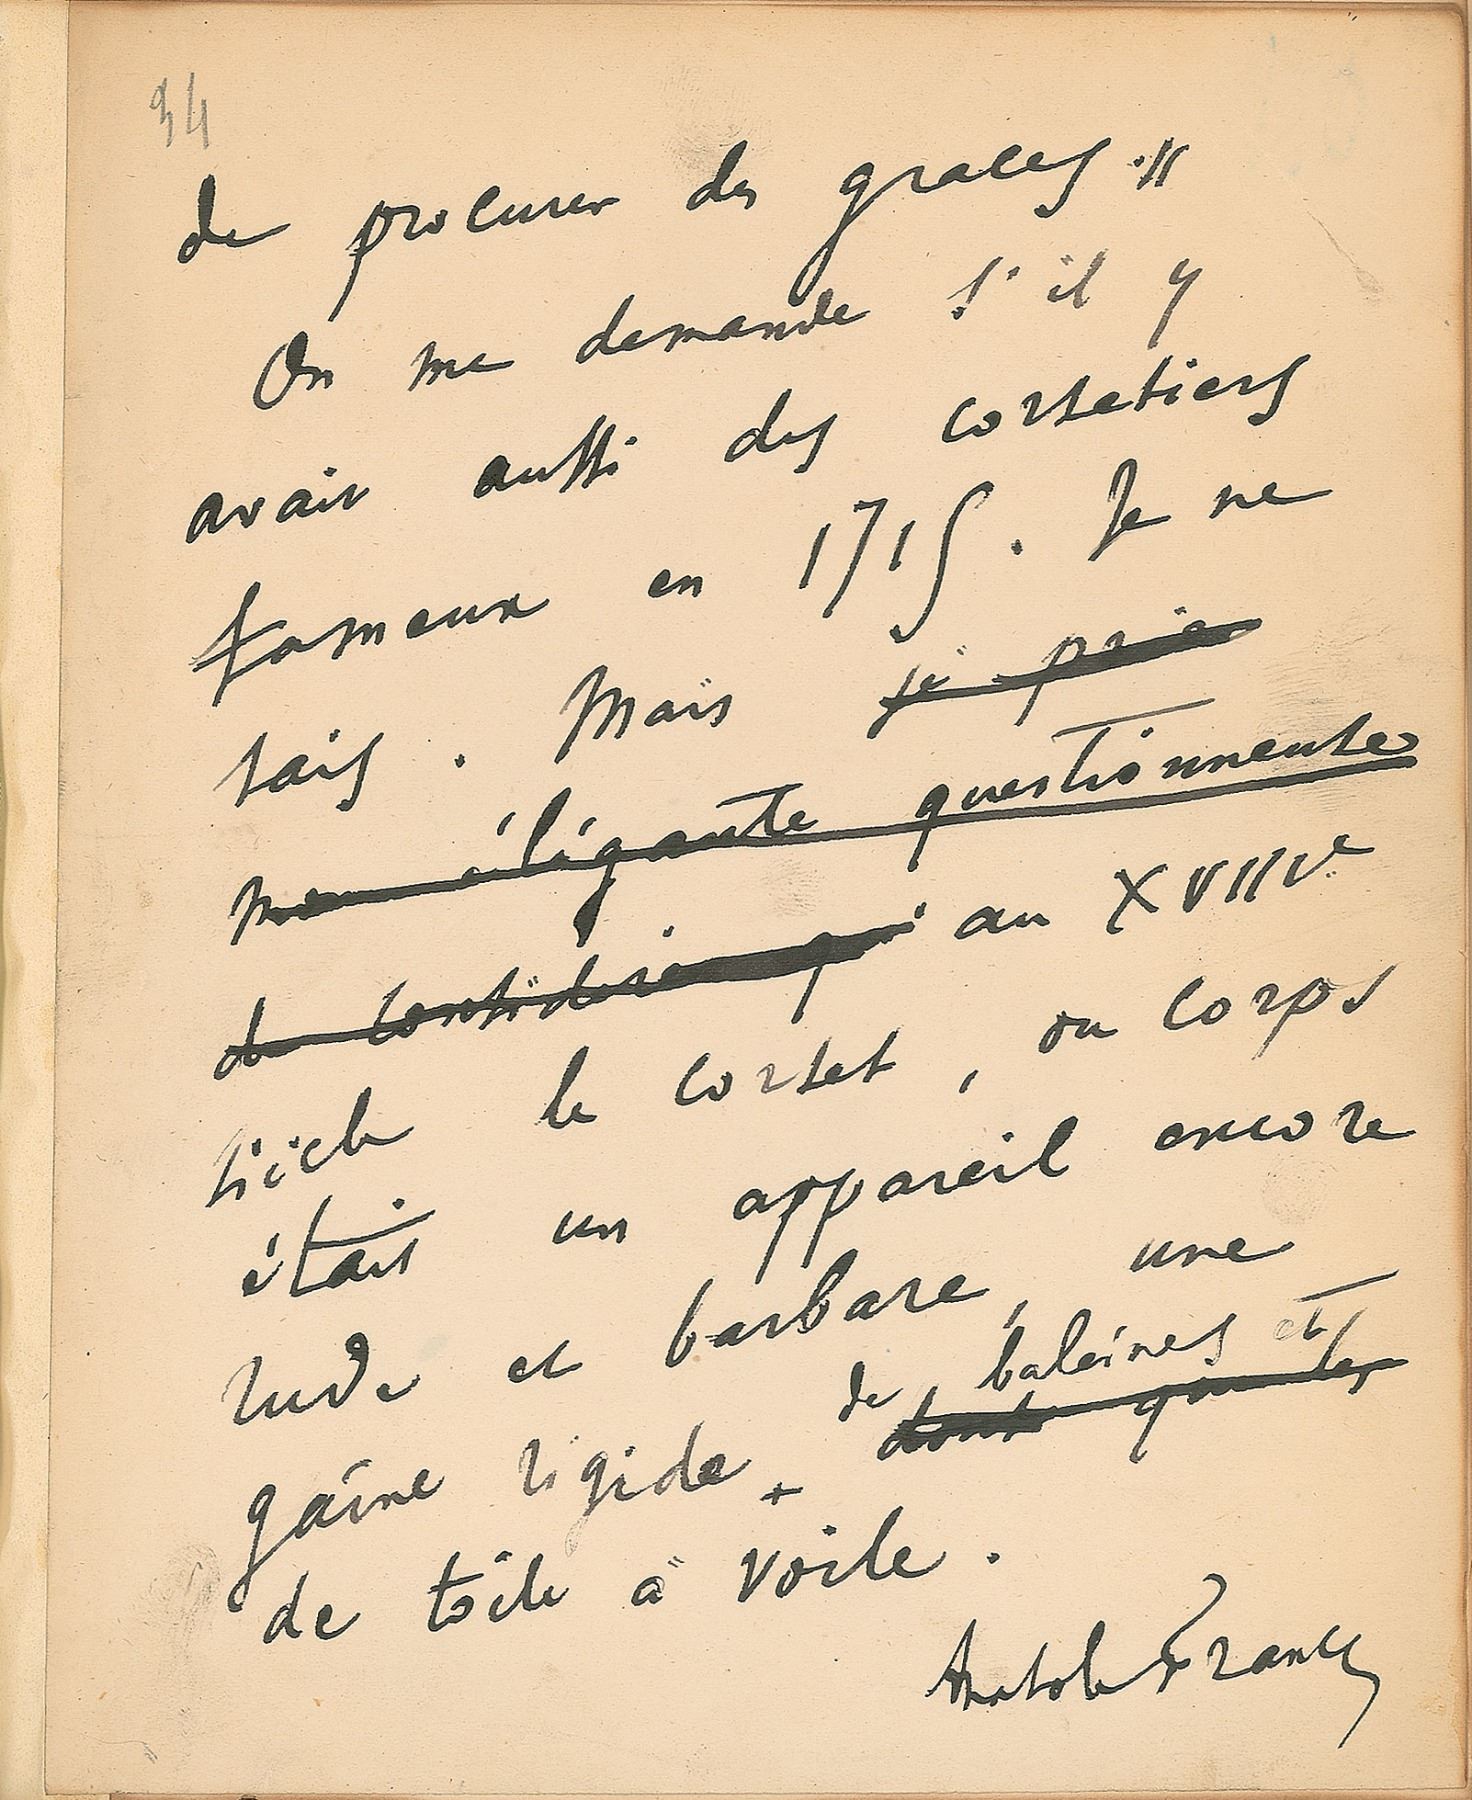 34
de procurer des graces. "
On me demande s'il y
avait aussi des corsetiers
fameux en 1715. Je ne
sais. Mais je prie
mon élégante questionneuse
de considérer que au XVIIIe
siècle le corset, ou corps
était un appareil encore
rude et barbare, une
de baleines et
gaîne rigide + dont que les
de toile à voile.
Anatole France